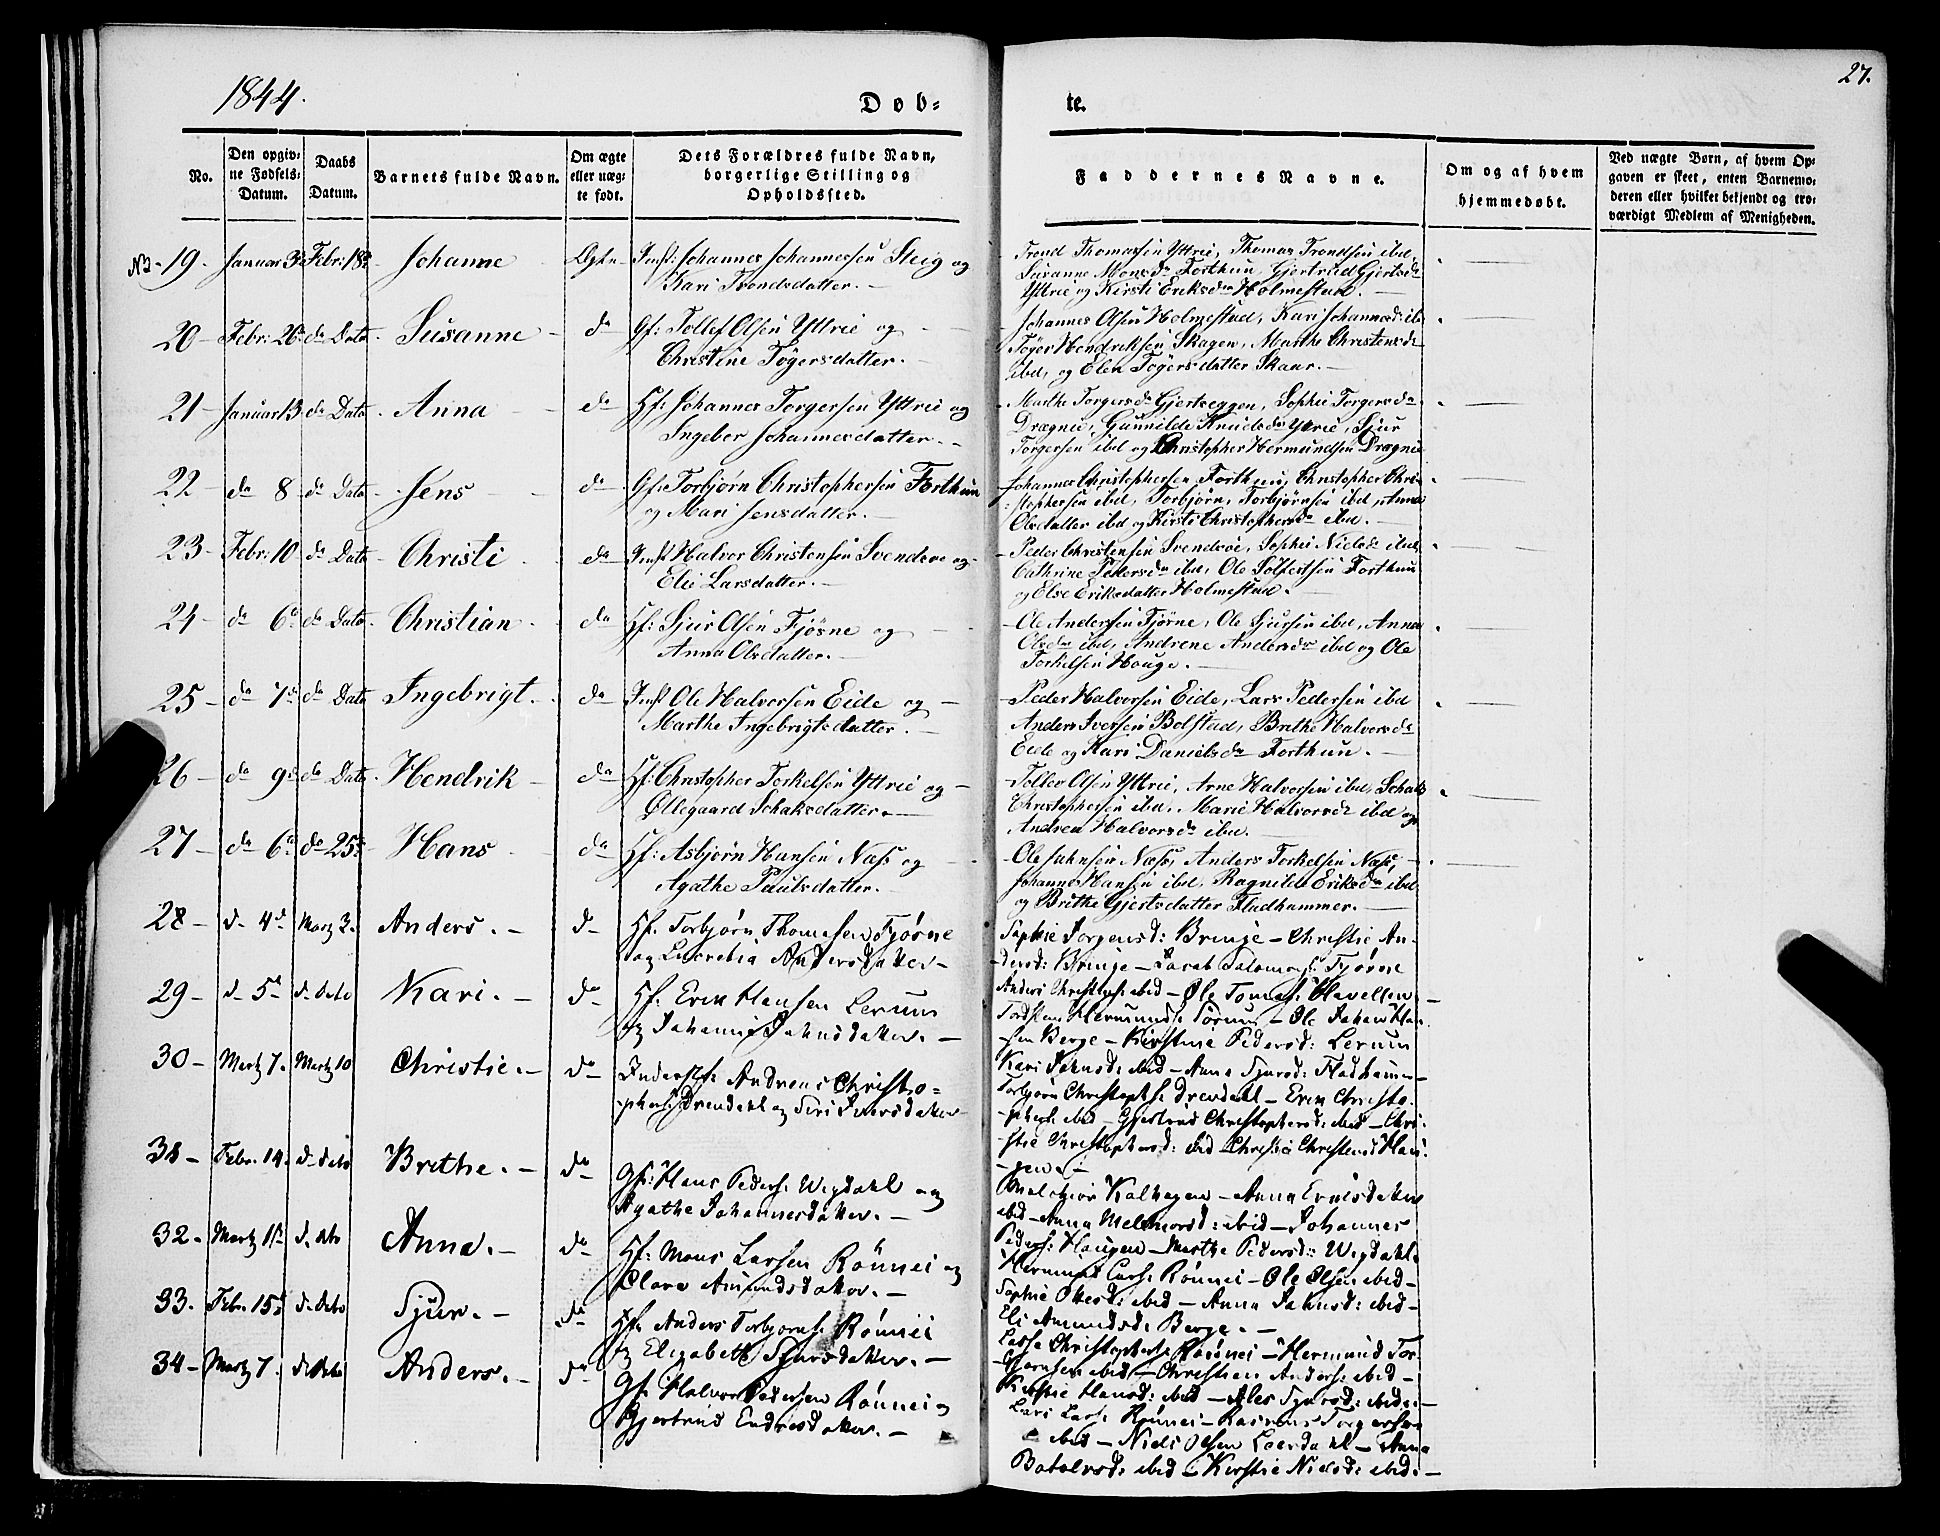 1844.
Døb-
te.
27.
No.
Den opgiv-
ne Fødsels-
Datum.
Daabs
Datum.
Barnets fulde Navn.
Om ægte
eller uæg-
te født.
Dets Forældres fulde Navn,
borgerlige Stilling og
Opholdssted.
Faddernes Navne.
Om og af hvem
hjemmedøbt.
Ved uægte Børn, af hvem Op-
gaven er skeet, enten Barnemo-
deren eller hvilket bekjendt og tro-
værdigt Medlem af Menigheden.
19. Januar Febr: 18 Johanne Ægte Inst: Johannes Johannessen Steig og
Kari Trondsdatter.
Trond Thomassen Yttrie, Thomas Trondsen ibd,
Susanne Monsdr Forthun, Gjertrud Gjertsdr
Yttrie og Kirsti Eriksdr Holmestad.
20 Febr: 20 do Dato Susanne do Gf: Tollef Olsen Yttrie og
Christine Tøgersdatter.
Johannes Olsen Holmestad, Kari Johannesdr ibd
Tøger Hendriksen Skagen, Marthe Christensdr
ibd, og Elen Tøgersdatter Skaar.
21 Januar 13 do Dato Anna do Hf: Johannes Torgersen Yttrie og
Ingebor Johannesdatter.
Marthe Torgersdr Gjertseggen, Sophie Torgersdr
Drægnie, Gunnilde Knudsdr Yttrie, Sjur
Torgersen ibd og Christopher Hermundsen Drægnie
22 do 8 do Dato Jens do Gf: Torbjørn Christophersen Forthun
og Mari Jensdatter.
Johannes Christophersen Forthun, Christopher Chri-
stophersen ibd, Torbjørn Torbjørnsen ibd, Anna
Olsdatter ibd og Kirsti Christophersdr ibd.
23 Febr: 10 do Dato Christi do Inst Halvor Christensen Svendsøe og
Eli Larsdatter.
Peder Christensen Svendsøe, Sophie Nielsdr ibid,
Cathrine Pedersdr ibd, Ole Solfestsen Forthun
og Else Eriksdatter Holmestad.
24 do 6 do Dato Christian do Hf: Sjur Olsen Fjørne og
Anna Olsdatter.
Ole Andersen Fjørne, Ole Sjursen ibd, Anna
Olsdr ibd, Andrene Andersdr ibd og Ole
Torkelsen Houge.
25 do 7 do Dato Ingebrigt do Inst Ole Halvorsen Eide og
Marthe Ingebrigtsdatter.
Peder Halvorsen Eide, Lars Pedersen ibd
Anders Iversen Bolstad, Brithe Halvorsdr
Eide og Kari Danielsdr Forthun.
26 do 9 do Dato Hendrik do Hf: Christopher Torkelsen Yttrie og
Øllegaard Schaksdatter.
Tollev Olsen Yttrie, Arne Halvorsen ibd, Schak
Christophersen ibd, Marie Halvorsdr ibd og
Andrea Halvorsdr ibd.
27 do 6 do 25 Hans do Hf: Asbjørn Hansen Næss og
Agathe Paulsdatter.
Ole Johnsen Næss, Anders Torkelsen Næss,
Johannes Hansen ibd, Ragnilde Eriksdr ibd
og Brithe Gjertsdatter Fladhammer.
28 d 4 Martz 3. Anders. do Hf. Torbjørn Thomesen Fjørne
og Lucretia Andersdatter
Sophie Jorgensd: Bringe - Christie An-
dersd: Bringe - Jacob Salomons. Fjørne
Anders Christophs. ibid - Ole Tomas.
29 d 5 d dito Kari. do Hf. Erik Hansen Lerum
og Johanne Johnsdatter.
Torsten Hermunds. Sørum - Ole Johan Han-
sen Berge - Kirstine Pedersd: Lerum
Kari Johnsd: ibid - Anna Sjursd: Fladham-
30 Martz 7. Martz 10 Christie. do Inderst: Andreas Christo-
phers. Drendahl og Siri Iversdatter
Torbjørn Christophs. Drendahl - Erik Christo-
phers. ibid - Gjertrud Christophersd: ibid - Chri-
stie Christophersd: ibid - Christie Christensd Hau-
gen.
31 Febr. 14. d dito Brithe. do Gf: Hans Peders. Wigdahl og
Agathe Johannesdatter.
Melchior Kalhagen - Anna
ibid - Anna Melchiorsd: ibid - Johannes
Peders: Haugen - Marthe Pedersd: Wigdahl.
32. Martz d. dito Anna. do Hf: Mons Larsen Rønnei og
Clara Amundsdatter.
Hermund Lars. Rønnei - Ole Olsen ibid -
Sophie Olesd: ibid - Anna Johnsd: ibid -
Eli Amundsd: Berge.
33. Febr. 15 d. dito Sjur. do Hf. Anders Torbjørns. Rønnei
og Elizabeth Sjursdatter.
Lasse Christophers. Rønnei - Hermund Tor-
bjørnsen ibid - Christian Anders. ibid -
Kirstie Hansd: ibid - Ales Sjursd: ibid.
34 Martz 7. d. dito Anders. do Gf. Halvor Pedersen Rønnei og
Gjertrud Endresdatter.
Lars Lars. Rønnei - Rasmus Torgersen
ibid - Niels Olsen Leerdahl - Anna
Botolvsd: ibid - Kirstie Nielsd: ibid.